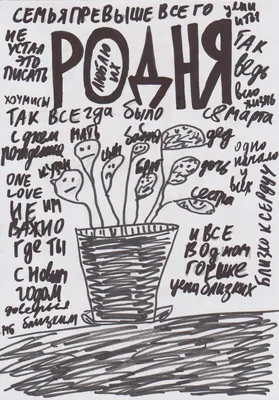 СЕМЬЯ ПРЕВЫШЕ ВСЕГО
ЦЕНИ
ИТЫ
НЕ
УСТАЛ
ЭТО
ПИСАТЬ
РОДНЯ
ЛЮБЛЮ
ИХ
ТАК
ВЕДЬ
ВСЮ
ЖИЗНЬ
ХОУМИСЫ
ТАК ВСЕГДА было
С 8 МАРТА
С ДНЕМ
РОЖДЕНИЯ
МАТЬ
СЫН
БАБКА
БРАТ
ДЕД
ДОЧЬ
СЕСТРА
КУЗЕН
ОДНО
НАЧАЛО
У
ВСЕХ
БЛИЗКО К СЕРДЦУ
ONE
LOVE
НЕ ИМ
ВАЖНО
ГДЕ ТЫ
С НОВЫМ
ГОДОМ
БЛИЗКИМ
И ВСЕ
В ОДНОМ
ГОРШКЕ
ЦЕНИ БЛИЗКИХ